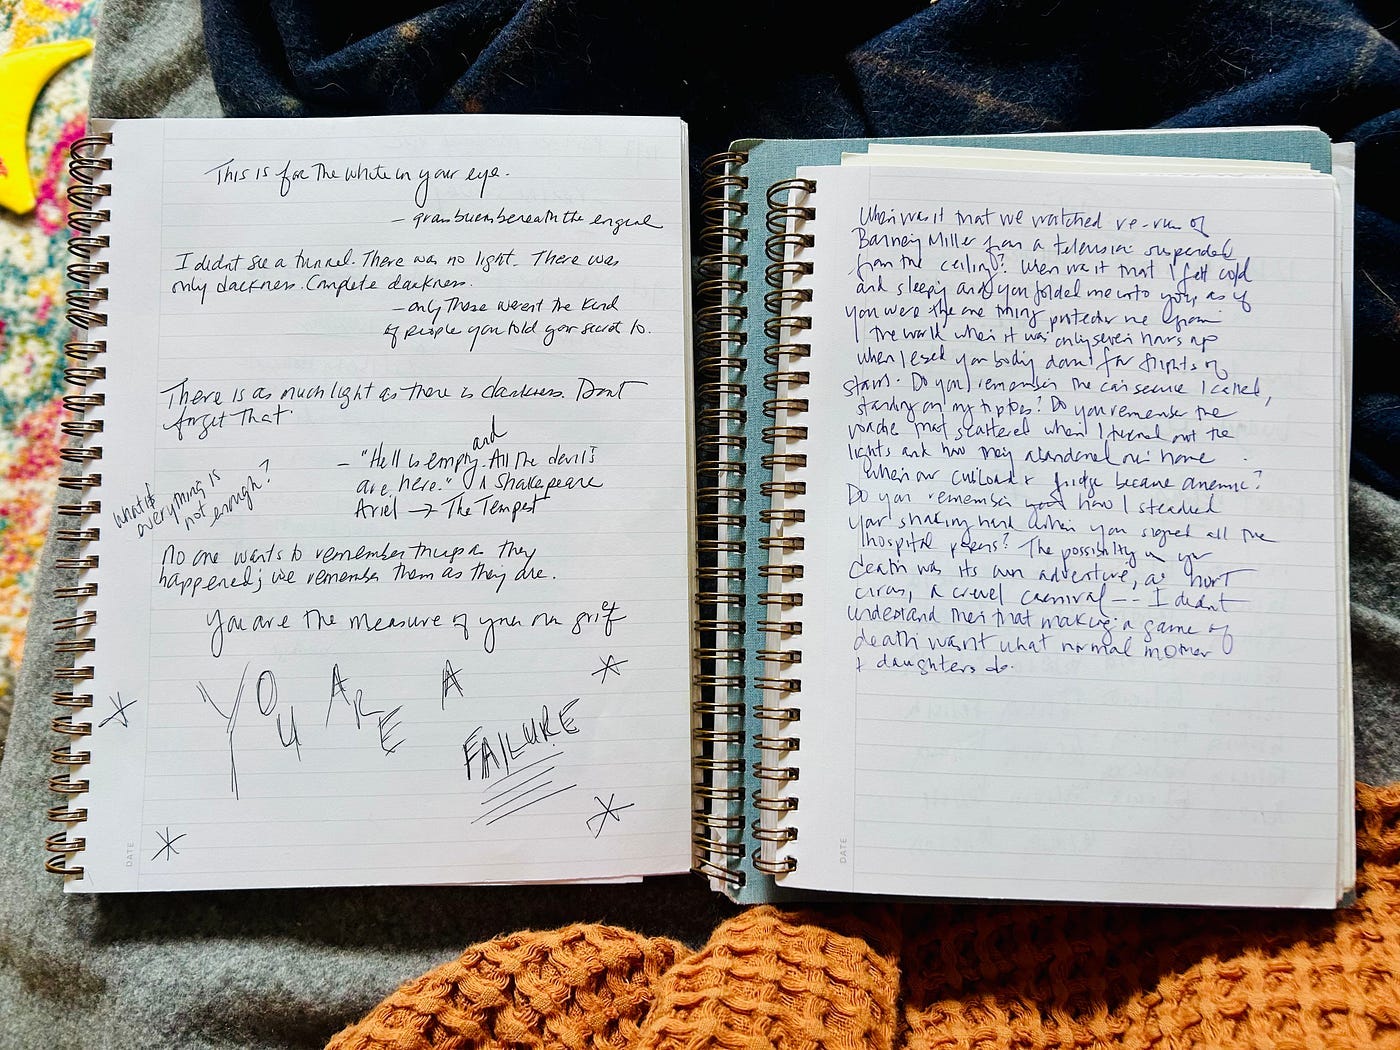 This is for the white in your eye.
— gramburem beneath the
I didnt see a tunnel. There was no light. There was
only darkness. Complete darkness.
— only these werent the kind
of people you told your secret to.
There is as much light as there is darkness. Dont
forget that.
and
— "Hell is empty. All the devils
are here." Shakespeare
Ariel → The Tempest
what if
everything is
not enough?
No one wants to remember things as they
happened; we remember them as they are.
You are the measure of your own grief
"YOU ARE A
FAILURE
DATE
When was it that we watched re-run of
Barney Miller from a television suspended
from the ceiling? When was it that I felt cold
and sleepy and you folded me into you, as if
you were the one thing protecting me from
the world when it was only seven hours ago
when I eased your body down four flights of
stairs. Do you remember the car service I called,
standing on my tiptoes? Do you remember the
roaches that scattered when I turned out the
lights and how they abandoned our home
when our cupboard + fridge became anemic?
Do you remember how I steadied
your shaking hand when you signed all the
hospital papers? The possibility in your
death was its own adventure, a
circus, a cruel carnival -- I didnt
understand then that making a game of
death wasnt what normal mother
+ daughters do.
DATE